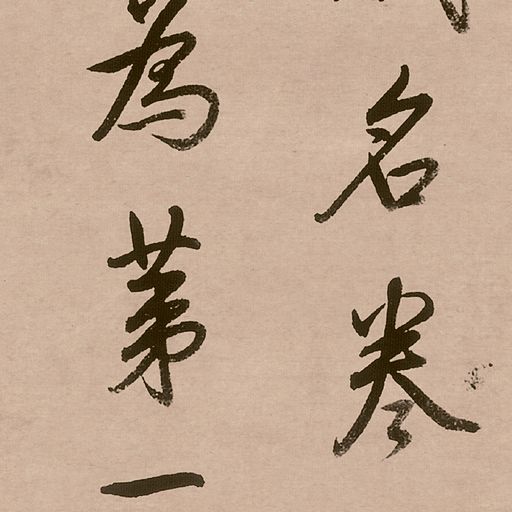 名卷
為第一